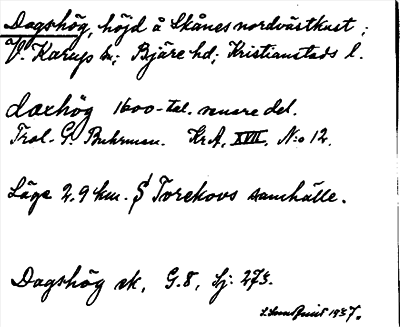 Dagshög, höjd å Skånes nordvästkust;
V. Karup sn; Bjäre hd; Kristianstads l.
daxhög 1600-tal. senare del.
Trol. G. Buhrman. KrA. XVII. N:o 12.
Läge 2,9 km. S Torekovs samhälle.
Dagshög ek, G.8, Sj: 273.
1937.